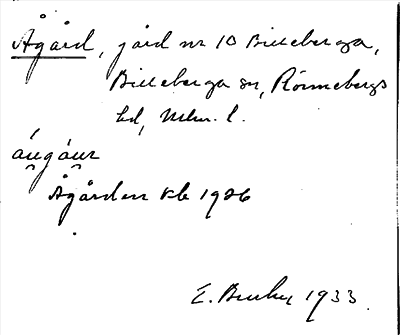 Ågård, gård nr 10 Billeberga,
Billeberga sn, Rönnebergs
hd, Mlm. l.
áu̯gáu̯r
Ågården kb 1926
E. 1933